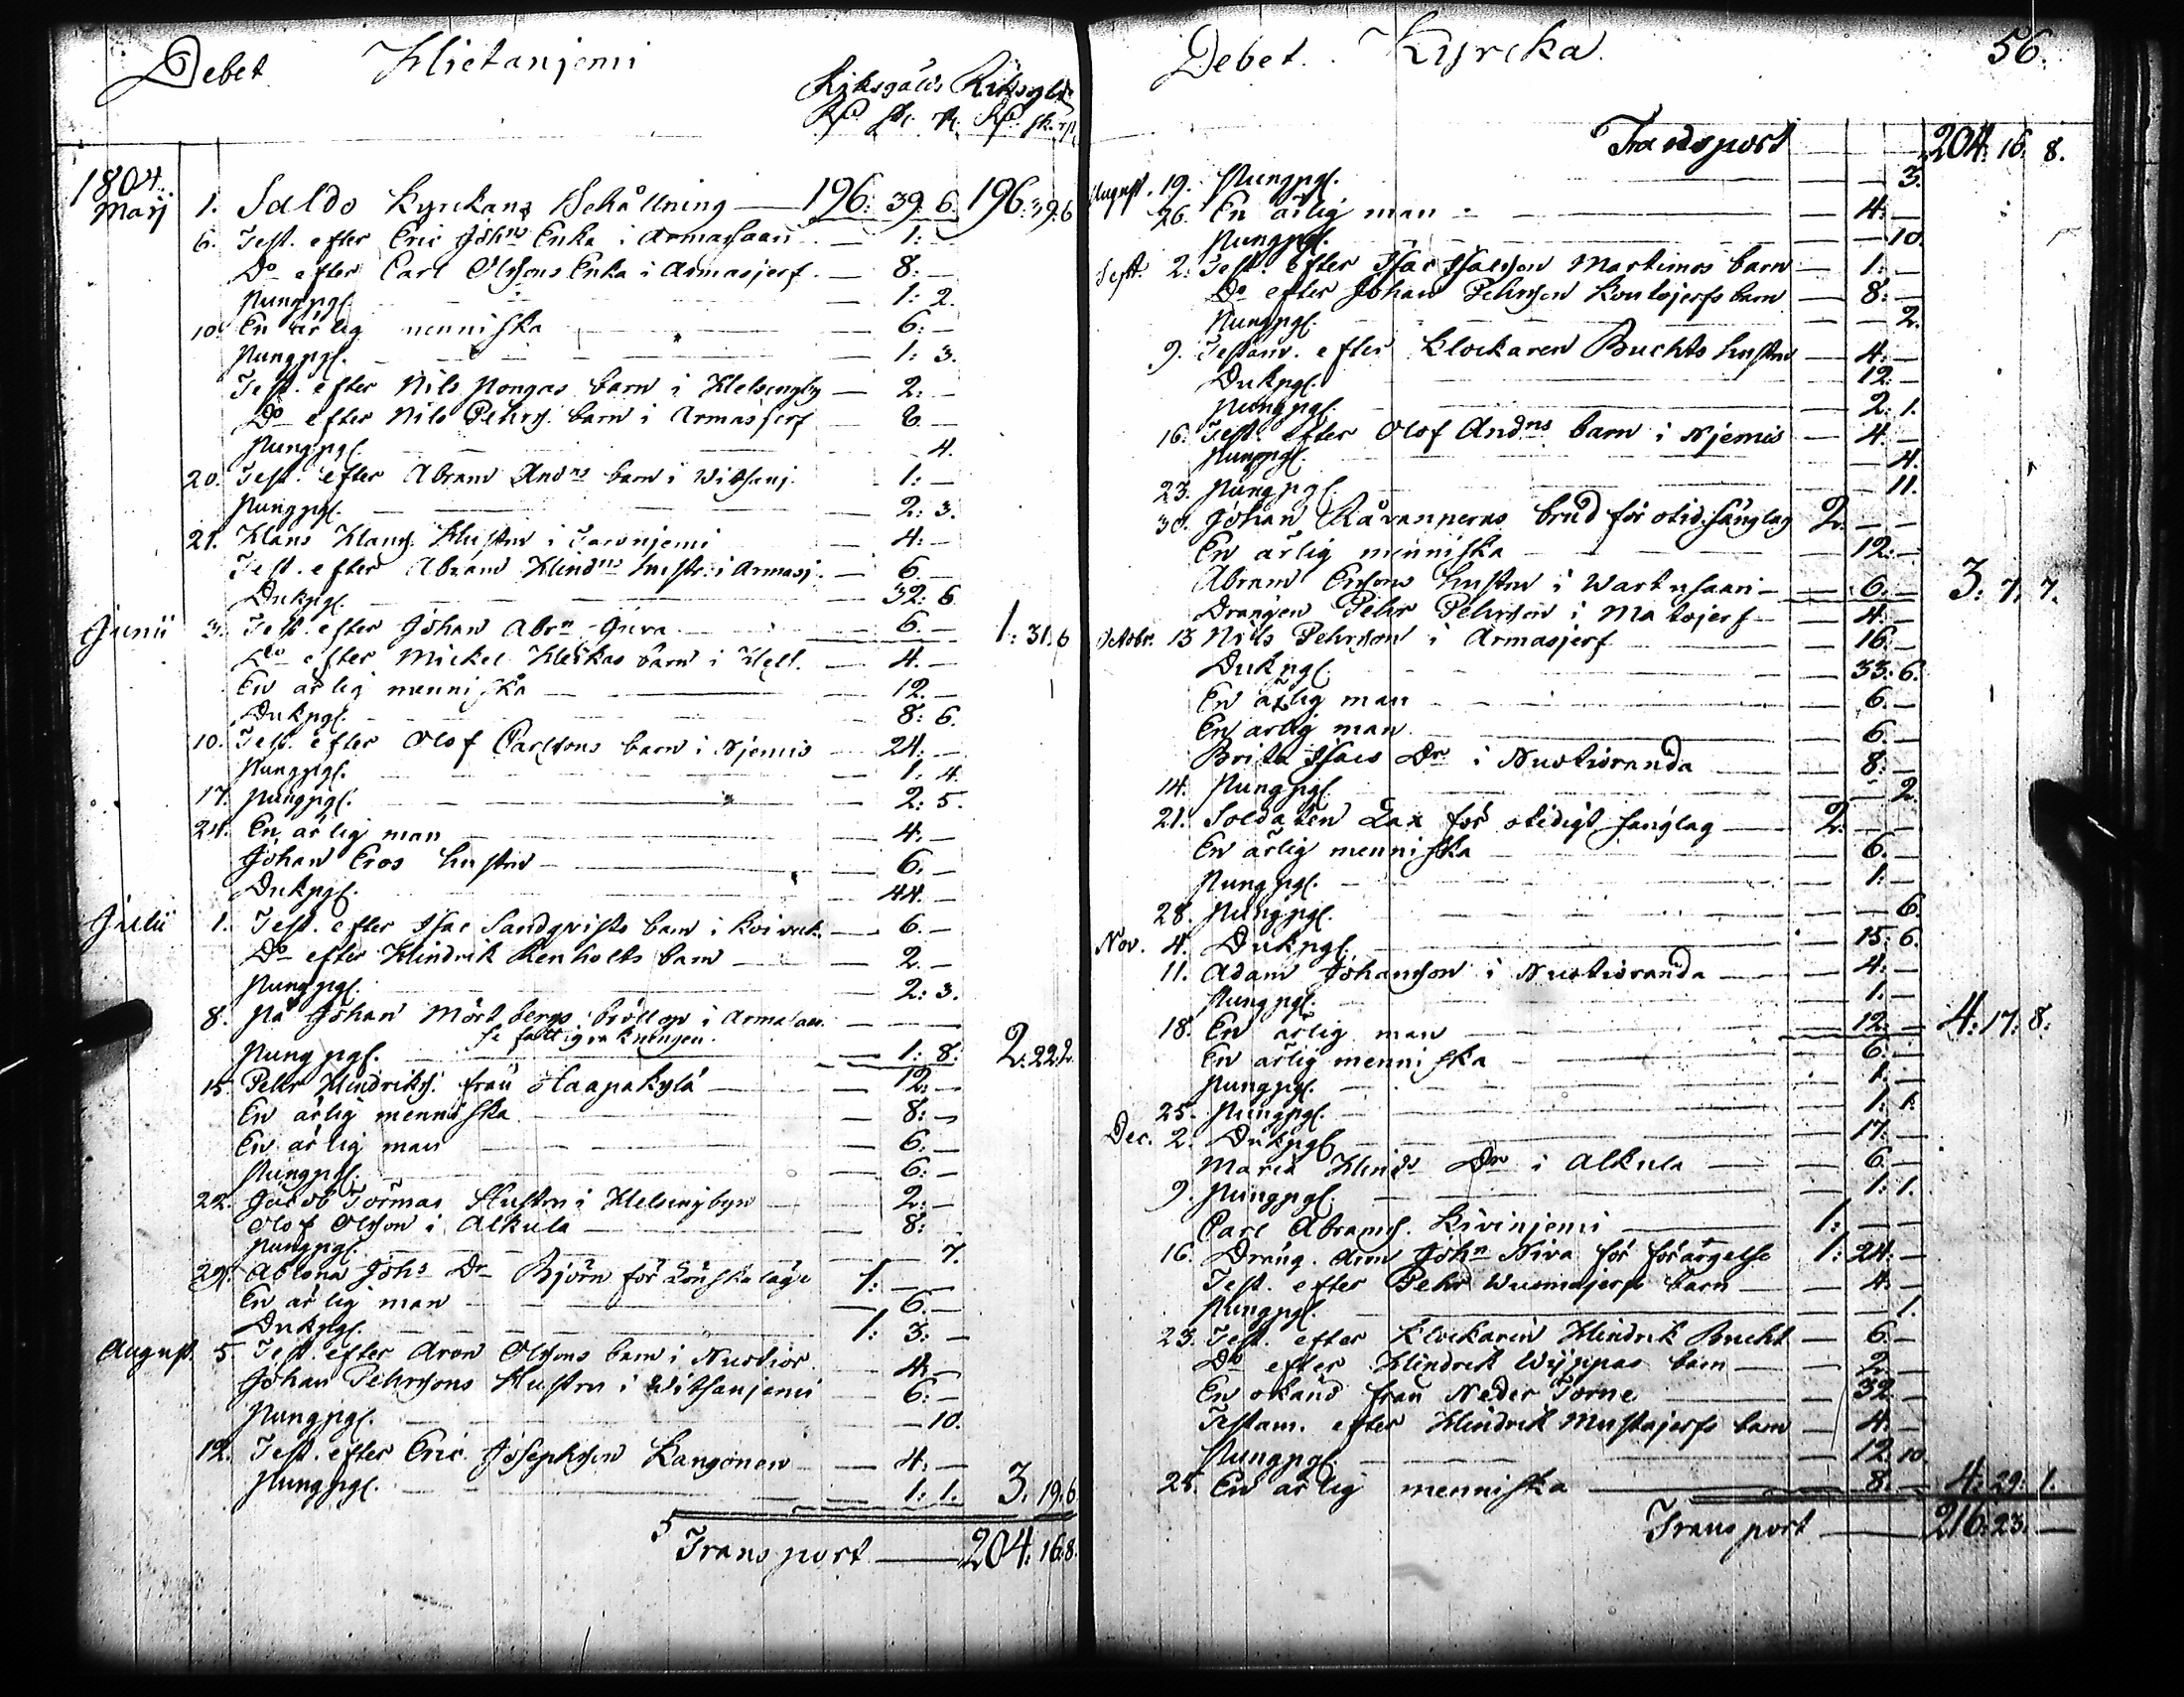 Debet Hietaniemi
Riksgälds Riksgälds
Rd sk. r. Rd: sk. r.
1804.
Maij 1. Saldo Kyrckans Behållning — 196: 39. 6. 196: 39. 6
6. Test. efter Eric Johns Enka i Armassaari — 1: —
Do efter Carl Olssons Enka i Armasjerf. — 8: —
Pungpgr. — 1: 2.
10. En ärlig menniska — 6: —
Pungpgr. — 1: 3.
Test. efter Nils Pongas barn i Helsingby — 2: —
Do efter Nils Pehrs. barn i Armasjerf — 6. —
Pungpgr. — 4.
20. Test. efter Abram Andns barn i Witsanj. 1: —
Pungpgr. — 2: 3.
21. Hans Hans. Hustru i Tawnjemi — 4: —
Test. efter Abram Hindns hustr. i Armasj. — 6 —
Dukpgr. — 32: 6
Junii 3. Test. efter Johan Abrn Juva — 6. — 1: 31. 6
Do efter Mickel Heickas barn i Hell. — 4. —
En ärlig menniska — 12. —
Dukpgr. — 8: 6.
10. Test. efter Olof Carlsons barn i Njemis — 24: —
Pungpgr. — 1: 4.
17. Pungpgr. — 2: 5.
24. En ärlig man — 4. —
Johan Eros hustru — 6. —
Dukpgr. — 44. —
Julii 1. Test. efter Isac Sandqvists barn i — 6. —
Do efter Hindrik Renholts barn — 2. —
Pungpgr. — 2: 3.
8. På Johan Mörtbergs bröllop i Armasaa. — —
se fattigräkningen.
Pungpgr. — 1: 8. 2: 22. 2.
15. Pehr Hindriks. från Haapakylä — 12: —
En ärlig menniska — 8: —
En ärlig man — 6. —
Pungpgr. — 6: —
22. Jacob Törmas Hustru i Helsingbyn — 2: —
Olof Olsson i Alkula — 8: —
Pungpgr. — 7.
29. Abluna Johs Dr Björn för Lönskaläge 1: — —
En ärlig man — 6. —
Dukpgr. — 1: 3: —
August. 5. Test. efter Aron Olssons barn i Nuotior. — 4. —
Johan Pehrssons Hustru i Witsanjemi — 6: —
Pungpgr. — 10.
12. Test. efter Eric Josephsson Kangonen — 4. —
Pungpgr. — 1: 1. 3. 19. 6
Transport — 204: 16. 8.
Debet. Kyrcka. 56.
Transport 204. 16. 8.
August. 19. Pungpgr. — 3.
26. En ärlig man — 4: —
Pungpgr. — 10.
Sept. 2. Test. efter Isac Isacsson Martimos barn — 1: —
Do efter Johan Pehrsson Koutojerfs barn — 8: —
Pungpgr. — 2.
9. Testam. efter Klockaren Buchts hustru — 4: —
Dukpgr. — 12: —
Pungpgr. — 2: 1.
16. Test. efter Olof Andns barn i Njemis — 4. —
Pungpgr. — 4.
23. Pungpgr. — 11.
30. Johan Råvannernas brud för otid. sänglag 2. — —
En ärlig menniska — 12: —
Abram Ersons hustru i Wartusaari — 6. — 3: 7. 7.
Drängen Pehr Pehrsson i Matojerf — 4. —
Octobr. 13 Nils Pehrsson i Armasjerf — 16: —
Dukpgr. — 33: 6.
En ärlig man — 6. —
En ärlig man — 6. —
Brita Isacs Dr i Nuotioranda — 8: —
14. Pungpgr. — 2.
21. Soldaten Lax för otidigt sänglag — 2. — —
En ärlig menniska — 6. —
Pungpgr. — 1: —
28. Pungpgr. — 6.
Nov. 4. Dukpgr. — 15: 6.
11. Adam Johansson i Nuotioranda — 4: —
Pungpgr. — 1: —
18. En ärlig man — 12: — 4: 17: 8.
En ärlig menniska — 6: —
Pungpgr. — 1: —
25. Pungpgr. — 1: 1.
Dec. 2. Dukpgr. — 17: —
Maria Hinds Dr i Alkula — 6: —
9. Pungpgr. — 1: 1.
Carl Abrams. Kivinjemi — 1: — —
16. Dräng. Aron Johns Niva för förargelse 1: 24: —
Test. efter Pehr Wuomajerfs barn — 4. —
Pungpgr. — 1.
23. Test. efter Klockaren Hindrik Bucht — 6. —
Do efter Hindrik Wyppas barn — 2 —
En okänd från Neder Torne — 32 —
Testam. efter Hindrik Mustajerfs barn — 4. —
Pungpgr. — 12. 10
25. En ärlig menniska — 8. — 4: 29: 1.
Transport — 216: 23. —